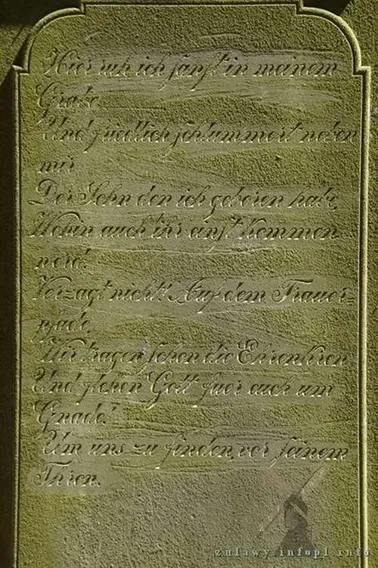 Hier ruh ich sanft in meinem
Grabe
Und friedlich schlummert neben
mir
Der Sohn den ich geboren habe,
Wohin auch ihr einst kommen
werd!
Verzagt nicht! Auf dem Trauer-
pfade,
Wir tragen schon die Ehrenkron
Und flehen Gott fuer euch um
Gnade!
Um uns zu finden vor seinem
Thron.
zulawy.infopl.info